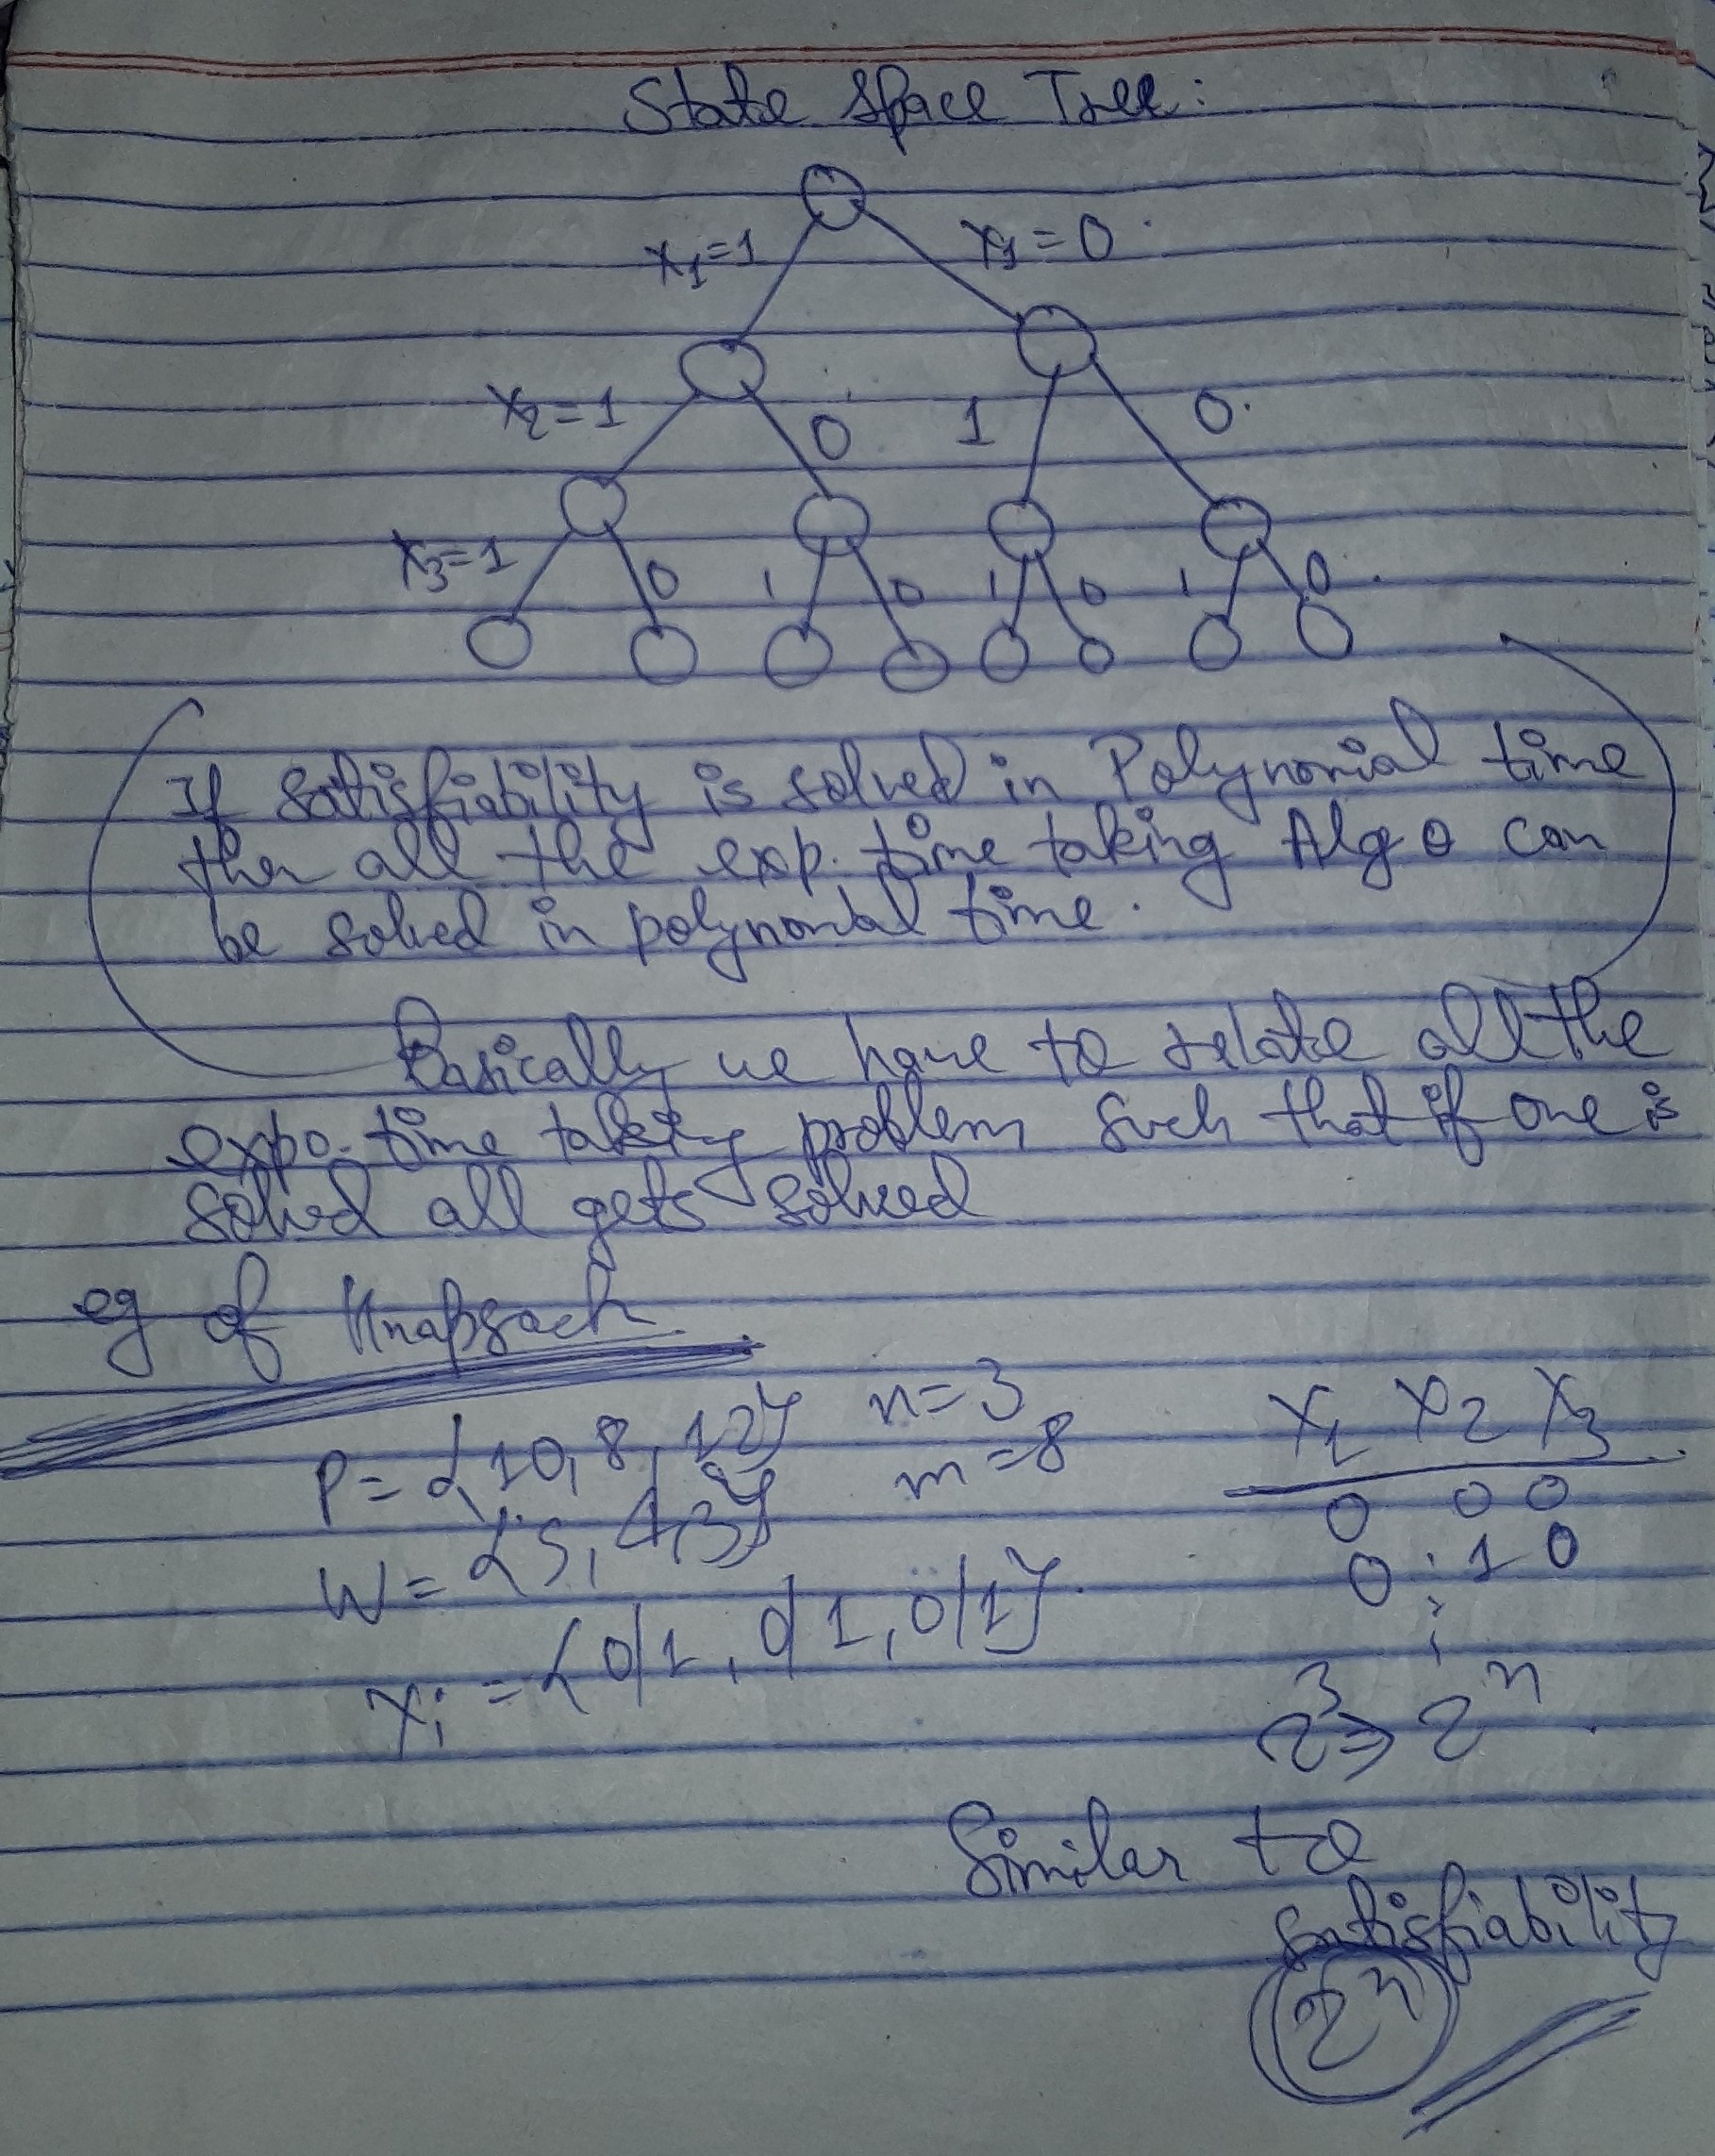 State Space Tree:
x₁=1 x₁=0
x₂=1 0 1 0
x₃=1 0 1 0 1 0 1 0
If satisfiability is solved in Polynomial time
then all the exp. time taking Algo can
be solved in polynomial time.
Basically we have to relate all the
expo. time taking problem such that if one is
solved all gets solved
eg of Knapsack
P = {10, 8, 12} n=3
W = {5, 4, 3} m=8
xᵢ = {0/1, 0/1, 0/1}
x₁ x₂ x₃
0 0 0
0 1 0
2³ ⇒ 2ⁿ
Similar to
satisfiability
2ⁿ